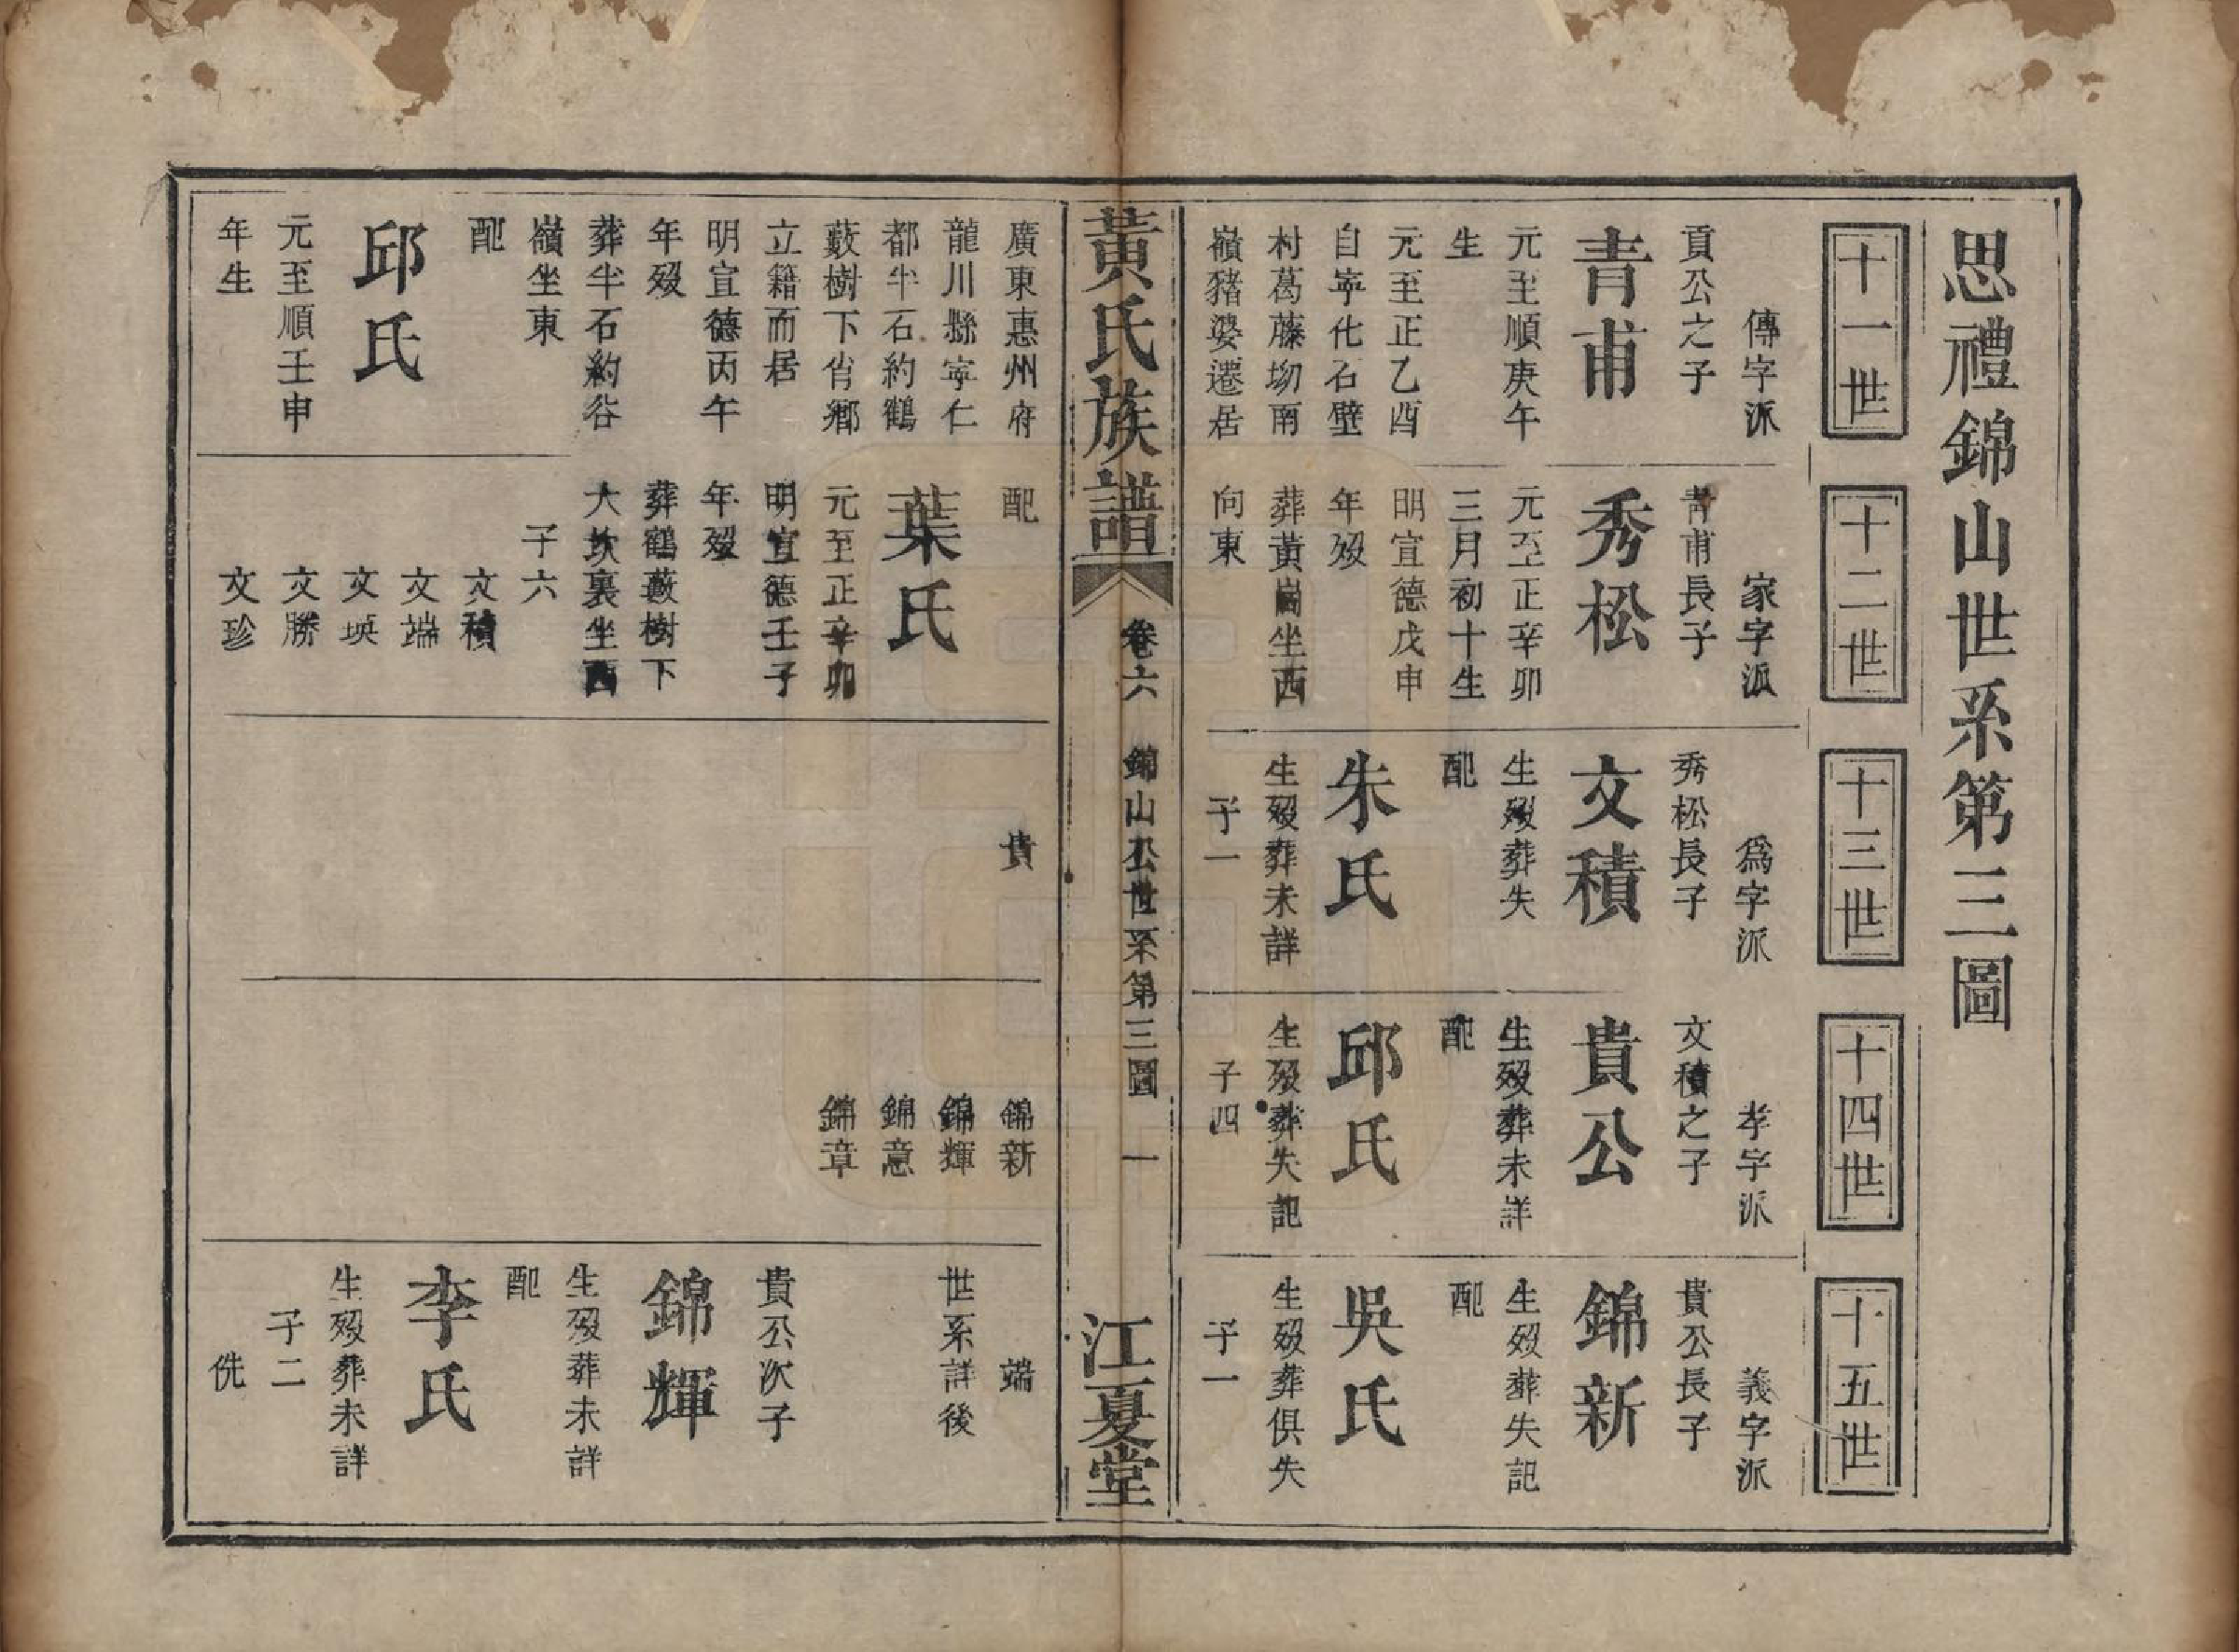 思禮錦山世系第三圖
十一世
傳字派
貢公之子
青甫
元至順庚午
生
元至正乙酉
自寧化石壁
村葛藤坳南
嶺豬婆遷居
十二世
家字派
青甫長子
秀松
元至正辛卯
三月初十生
明宣德戊申
年歿
葬黃崗坐西
向東
十三世
為字派
秀松長子
文積
生歿葬失
配
朱氏
生歿葬未詳
子一
十四世
孝字派
文積之子
貴公
生歿葬未詳
配
邱氏
生歿葬失記
子四
十五世
義字派
貴公長子
錦新
生歿葬失記
配
吳氏
生歿葬俱失
子一
黃氏族譜
卷六
錦山公世系第三圖
一
江夏堂
廣東惠州府
龍川縣寧仁
都半石約鶴
藪樹下峕鄉
立籍而居
明宣德丙午
年歿
葬半石約谷
嶺坐東
配
邱氏
元至順壬申
年生
配
葉氏
元至正辛卯
明宣德壬子
年歿
葬鶴藪樹下
大坎裏坐西
子六
文積
文端
文瑛
文勝
文珍
貴
錦新
錦輝
錦意
錦章
端
世系詳後
貴公次子
錦輝
生歿葬未詳
配
李氏
生歿葬未詳
子二
侁